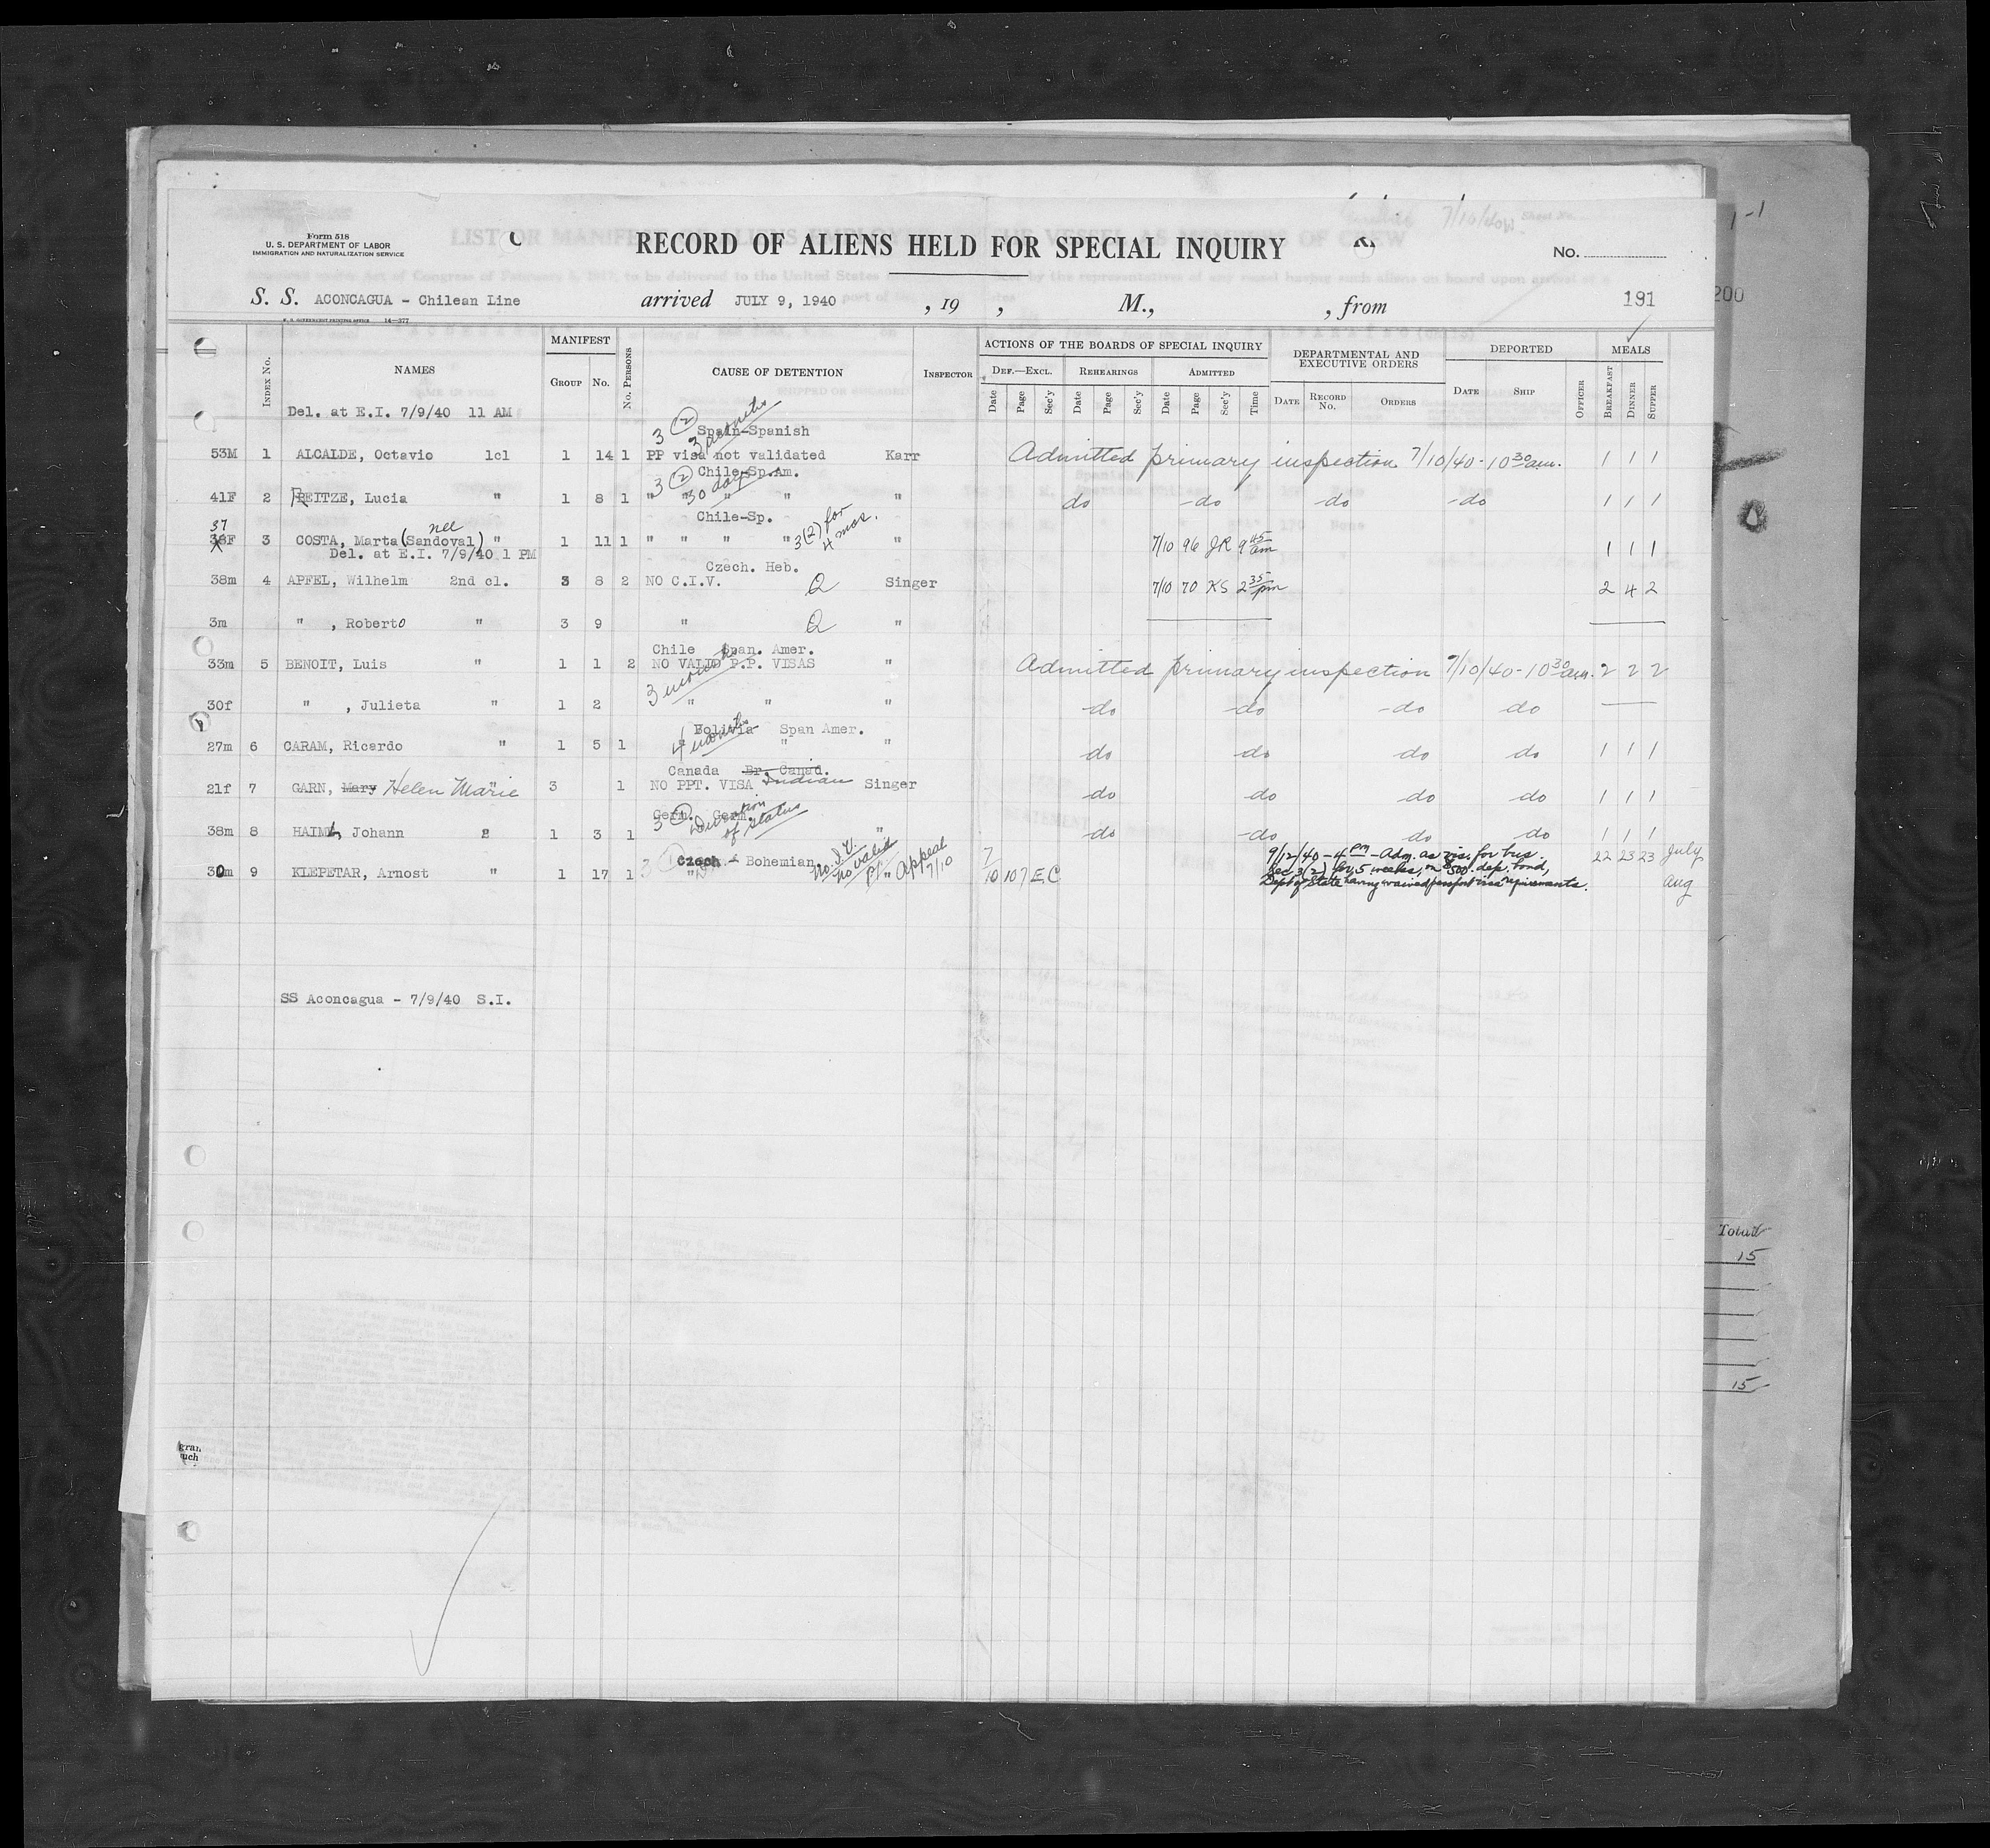 Form 518
U. S. DEPARTMENT OF LABOR
IMMIGRATION AND NATURALIZATION SERVICE
RECORD OF ALIENS HELD FOR SPECIAL INQUIRY
No.
S. S. ACONCAGUA - Chilean Line arrived JULY 9, 1940 , 19 , M., , from 191
U. S. GOVERNMENT PRINTING OFFICE 14—377
Index No. NAMES MANIFEST Group No. No. Persons CAUSE OF DETENTION Inspector ACTIONS OF THE BOARDS OF SPECIAL INQUIRY DEPARTMENTAL AND EXECUTIVE ORDERS DEPORTED MEALS
Def.—Excl. Rehearings Admitted
Date Page Sec'y Date Page Sec'y Date Page Sec'y Time Date Record No. Orders Date Ship Officer Breakfast Dinner Supper
Del. at E.I. 7/9/40 11 AM
3 (2) 3 months Spain-Spanish
53M 1 ALCALDE, Octavio 1cl 1 14 1 PP visa not validated Karr Admitted primary inspection 7/10/40 - 10 30 am. 1 1 1
3 (2) 30 days Chile-Sp.Am.
41F 2 REITZE, Lucia " 1 8 1 " " " " " do -do -do -do 1 1 1
Chile-Sp.
37 38F 3 COSTA, Marta (nee Sandoval) " 1 11 1 " " " " 3(2) for 4 mos. " 7/10 96 JR 9 45 am 1 1 1
Del. at E.I. 7/9/40 1 PM
Czech. Heb.
38m 4 APFEL, Wilhelm 2nd cl. 3 8 2 NO C.I.V. Q Singer 7/10 70 KS 2 35 pm 2 4 2
3m " , Roberto " 3 9 " Q "
Chile Span. Amer.
33m 5 BENOIT, Luis " 1 1 2 NO VALID P.P. VISAS " Admitted primary inspection 7/10/40 - 10 30 am. 2 2 2
3 months
30f " , Julieta " 1 2 " " " -do -do -do do
4 months Bolivia Span Amer.
27m 6 CARAM, Ricardo " 1 5 1 " " -do -do do do 1 1 1
Canada Br. Canad. Indian
21f 7 GARN, Mary Helen Marie " 3 1 NO PPT. VISA Singer -do -do -do do 1 1 1
Germ. Germ. 3 of status
38m 8 HAIM, Johann 2 1 3 1 " -do -do do do 1 1 1
Czech - Bohemian no I.V. no valid PP Appeal 7/10
30m 9 KLEPETAR, Arnost " 1 17 1 " " 7/10 107 EC 9/12/40 - 4 pm - Adm. as vis. for bus. 22 23 23 July
Sec 3(2) for 5 weeks, on $500. dep. bond,
Dept of State having waived passport visa requirements. Aug
SS Aconcagua - 7/9/40 S.I.
200
Total
15
15